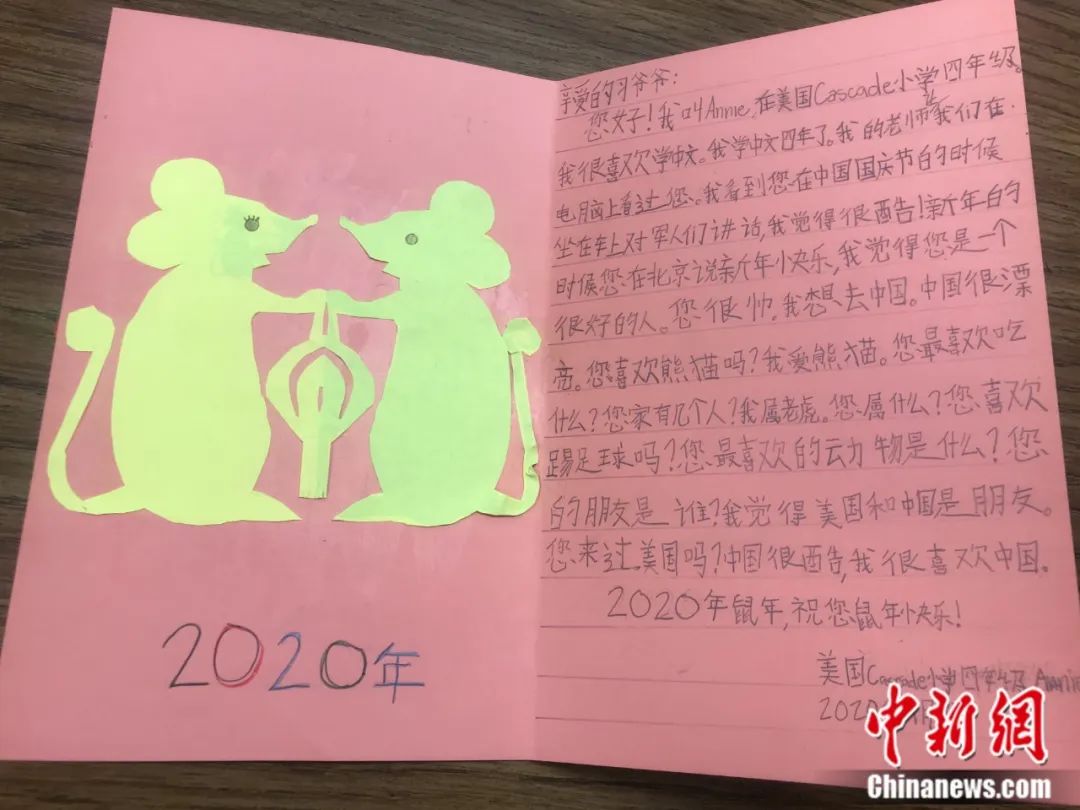 2020年
亲爱的习爷爷：
您好！我叫Annie,在美国Cascade小学四年级。
我很喜欢学中文。我学中文四年了。我的老师我们在
电脑上看过您。我看到您在中国国庆节的时候
坐在车上对军人们讲话,我觉得很酷!新年的
时候您在北京说新年快乐,我觉得您是一个
很好的人。您很帅。我想去中国。中国很漂
亮。您喜欢熊猫吗?我爱熊猫。您最喜欢吃
什么?您家有几个人?我属老虎。您属什么?您喜欢
踢足球吗?您最喜欢的动物是什么?您
的朋友是谁?我觉得美国和中国是朋友。
您来过美国吗?中国很酷,我很喜欢中国。
2020年鼠年,祝您鼠年快乐!
美国Cascade小学四年级 Annie
2020
中新網
Chinanews.com